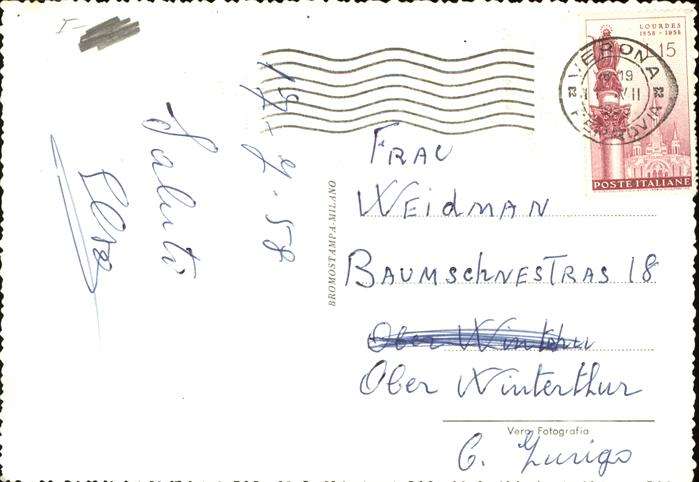 5-
17-7-58
Saluti
Elsa
BROMOSTAMPA-MILANO
LOURDES
1858 - 1958
L.15
POSTE ITALIANE
VERONA
19
VII
FERROVIA
FRAU
WEIDMAN
BAUMSCHNESTRAS 18
Ober Winterthur
Vera Fotografia
C. Zurigo